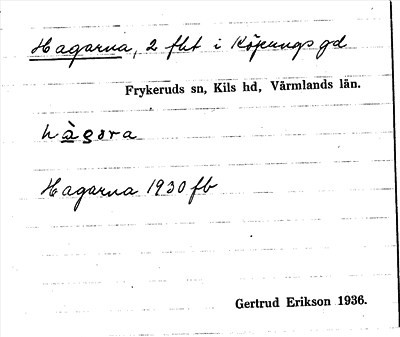 Hagarna, 2 fht i Köpungs gd
Frykeruds sn, Kils hd, Värmlands län.
hàgɑra
Hagarna 1930 fb
Gertrud Erikson 1936.